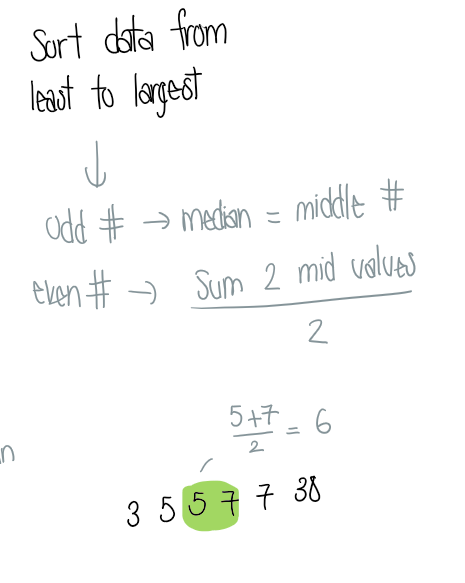 Sort data from
least to largest
↓
odd # → median = middle #
even # → Sum 2 mid values
2
5+7
2
= 6
n
3 5 5 7 7 38